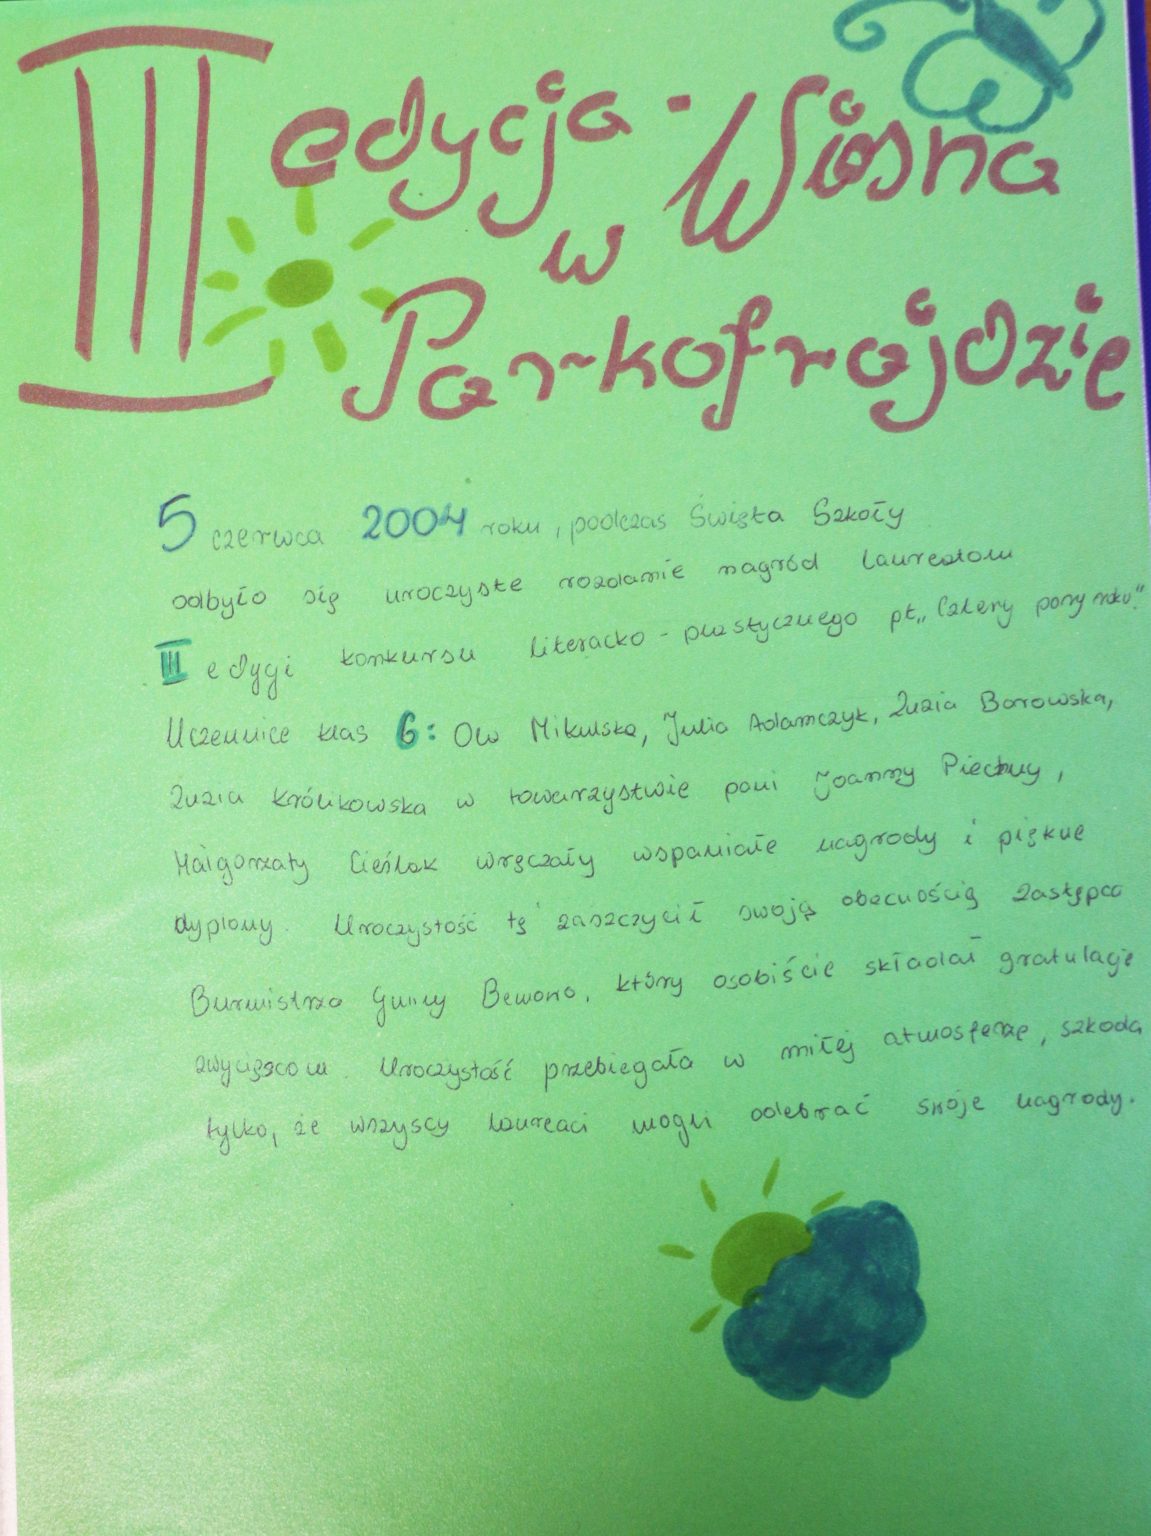 III edycja - Wiosna
w
Parkofrajdzie
5 czerwca 2004 roku, podczas Święta Szkoły
odbyło się uroczyste rozdanie nagród laureatom
III edycji konkursu literacko - plastycznego pt. „Cztery pory roku".
Uczennice klas 6: Ola Mikulska, Julia Adamczyk, Zuzia Borowska,
Zuzia Królikowska w towarzystwie pani Joanny Piechny,
Małgorzaty Cieślak wręczały wspaniałe nagrody i piękne
dyplomy. Uroczystość tę zaszczycił swoją obecnością Zastępca
Burmistrza Gminy Bemowo, który osobiście składał gratulacje
zwycięzcom. Uroczystość przebiegała w miłej atmosferze, szkoda
tylko, że wszyscy laureaci mogli odebrać swoje nagrody.